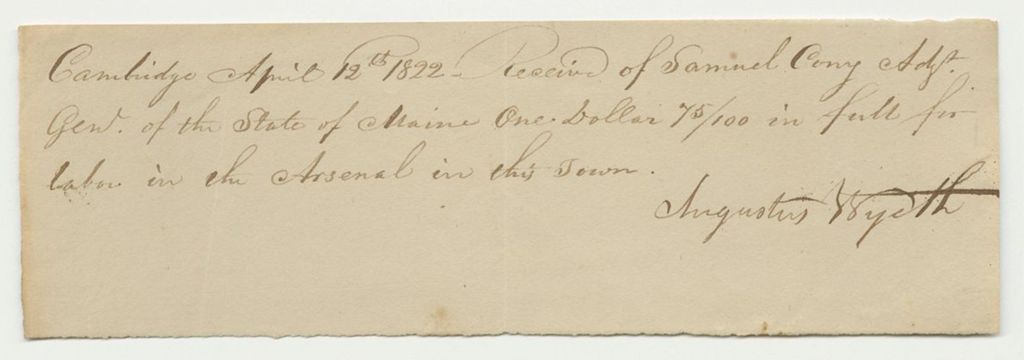 Cambridge April 12th 1822 - Received of Samuel Cony Adjt.
Genl. of the State of Maine One Dollar 75/100 in full for
labor in the Arsenal in this Town.
Augustus Wyeth